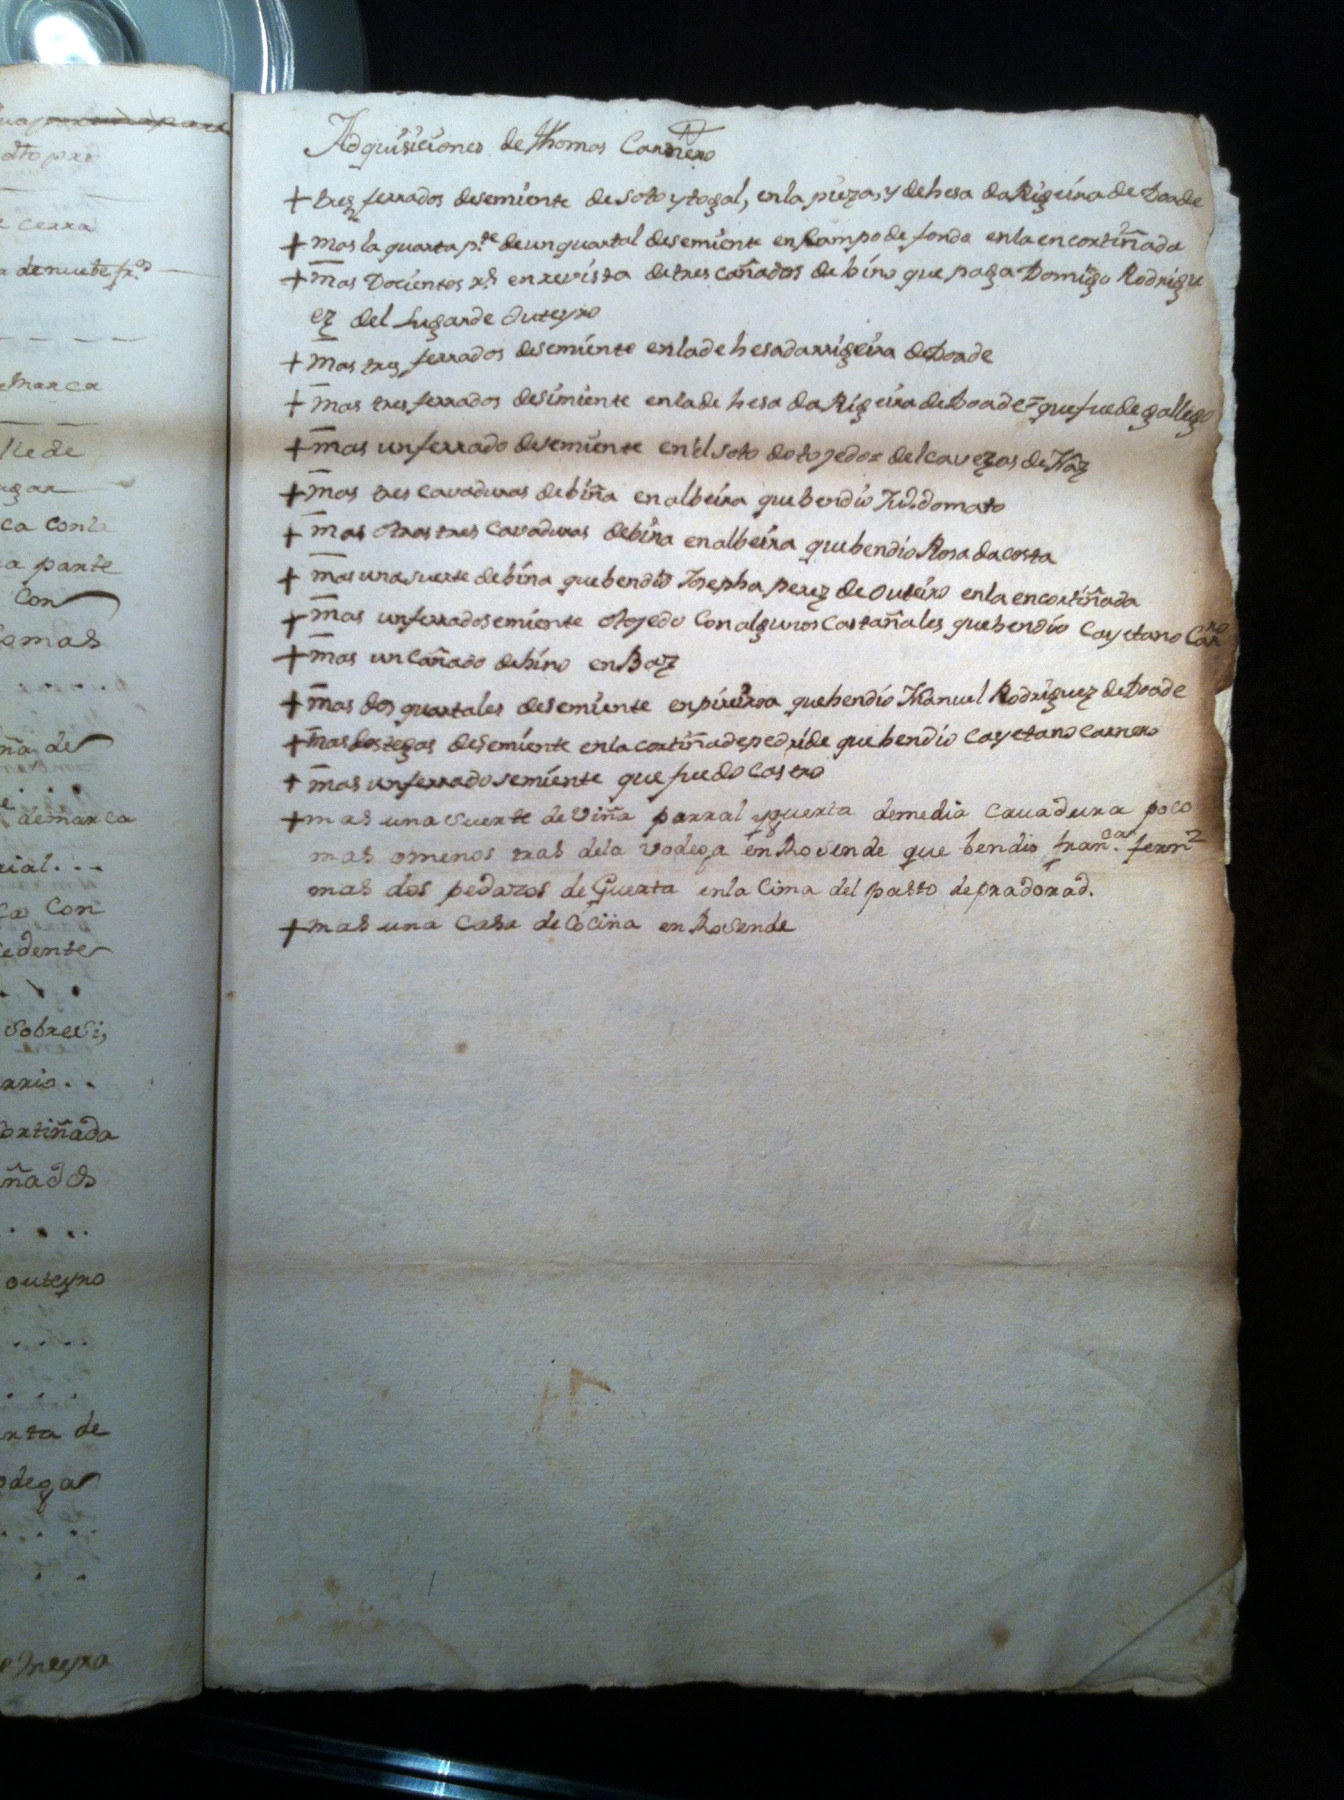 Adquisiciones de Thomas Carnero
+ tres ferrados desemiente de soto ytogal, enla pieza, y dehesa da Rigueira de Doade
+ mas la quarta p.te de un quartal desemiente en Campo de fondo enla encortiñada
+ mas Docientos rs en revista de tres cañados de bino que paga Domingo Rodrigu
ez del Lugar de outeyro
+ mas tres ferrados desemiente enla dehesa darrigeira de Doade
+ mas tres ferrados desimiente enla de hesa da Rigeira de Doade que fue de gallego
+ mas un ferrado desemiente en el soto do tojedo delcavezas de
+ mas tres cavaduras de biña en albeira que bendio domato
+ mas otras tres cavaduras debiña en albeira que bendio Rosa dacosta
+ mas una suerte de biña que bendio Josepha perez de outeiro enla encortiñada
+ mas un ferrado semiente otojedo con algunos Castañales que bendio Cayetano Carro
+ mas un Cañado debino en Baz
+ mas dos quartales desemiente en que bendio Manuel Rodriguez de Doade
+ mas dos tegas desemiente enla cortiña depedride que bendio Cayetano Carnero
+ mas un ferrado semiente que fue do Castro
+ mas una Suerte de Viña parral y guerta demedia Cavadura poco
mas omenos tras dela vodega en Rosende que bendio fran.ca fernz
mas dos pedazos de Guerta enla Cima del pasto de pradorad.
+ mas una Casa de Cocina en Rosende
cerra
marca
ca Conla
a parte
Con
omas
ña de
demarca
rial. . .
Ca Con
edente
sobresi,
rrio. .
Cortiñada
ñados
outeyro
rta de
odega